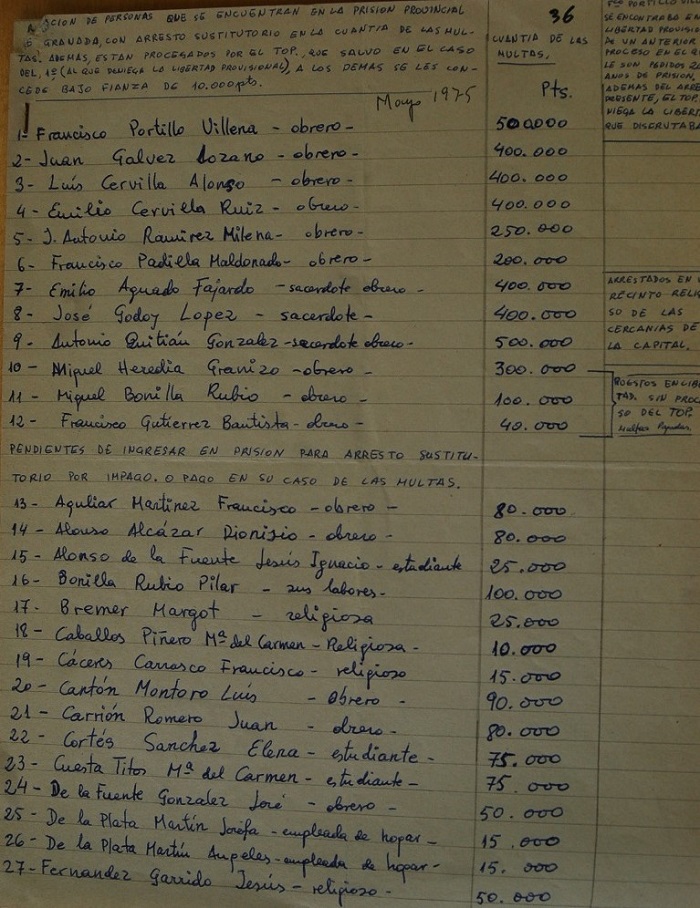 CION DE PERSONAS QUE SE ENCUENTRAN EN LA PRISION PROVINCIAL
GRANADA, CON ARRESTO SUSTITUTORIO EN LA CUANTIA DE LAS MUL-
TAS. ADEMAS, ESTAN PROCESADOS POR EL TOP., QUE SALVO EN EL CASO
DEL, 1º (AL QUE DENIEGA LA LIBERTAD PROVISIONAL), A LOS DEMAS SE LES CON-
CEDE BAJO FIANZA DE 10.000 pts.
Mayo 1975
36
CUANTIA DE LAS
MULTAS.
Pts.
SE ENCONTRABA EN
LIBERTAD PROVISIO
DE UN ANTERIOR
PROCESO EN EL Q
LE SON PEDIDOS
AÑOS DE PRISION.
ADEMAS DEL ARRE
PRESENTE, EL TOP
NIEGA LA LIBERT
QUE DISFRUTABA
1- Francisco Portillo Villena - obrero - 500.000
2- Juan Galvez Lozano - obrero - 400.000
3- Luis Cervilla Alonso - obrero - 400.000
4- Emilio Cervilla Ruiz - obrero - 400.000
5- J. Antonio Ramirez Milena - obrero - 250.000
6- Francisco Padilla Maldonado - obrero - 200.000
7- Emilio Aguado Fajardo - sacerdote obrero - 400.000
8- José Godoy Lopez - sacerdote - 400.000
9- Antonio Quitián Gonzalez - sacerdote obrero - 500.000
ARRESTADOS EN
RECINTO RELIG
SO DE LAS
CERCANIAS DE
LA CAPITAL.
10- Miguel Heredia Granizo - obrero - 300.000
11- Miguel Bonilla Rubio - obrero - 100.000
12- Francisco Gutierrez Bautista - obrero - 40.000
PUESTOS EN LIBER
TAD. SIN PROCE
SO DEL TOP.
Multas Pagadas
PENDIENTES DE INGRESAR EN PRISION PARA ARRESTO SUSTITU-
TORIO POR IMPAGO. O PAGO EN SU CASO DE LAS MULTAS.
13- Aguliar Martinez Francisco - obrero - 80.000
14- Alonso Alcázar Dionisio - obrero - 80.000
15- Alonso de la Fuente Jesús Ignacio - estudiante 25.000
16- Bonilla Rubio Pilar - sus labores - 100.000
17- Bremer Margot - religiosa 25.000
18- Caballos Piñero Mª del Carmen - Religiosa - 10.000
19- Cáceres Carrasco Francisco - religioso 15.000
20- Cantón Montoro Luis - Obrero - 90.000
21- Carrión Romero Juan - obrero - 80.000
22- Cortés Sanchez Elena - estudiante - 75.000
23- Cuesta Titos Mª del Carmen - estudiante - 75.000
24- De la Fuente Gonzalez José - obrero - 50.000
25- De la Plata Martín Josefa - empleada de hogar - 15.000
26- De la Plata Martín Angeles - empleada de hogar - 15.000
27- Fernandez Garrido Jesús - religioso - 50.000